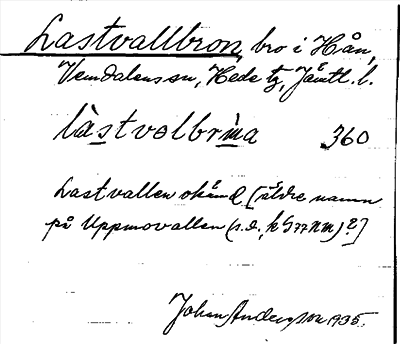 Lastvallbron, bro i Hån,
Vemdalens sn, Hede tg, Jämtl. l.
làstvɵlbrɯ̀na 360
Lastvallen okänd [äldre namn
på Uppmovallen (s.d., k G77NM)?]
Johan Andersson 1935.